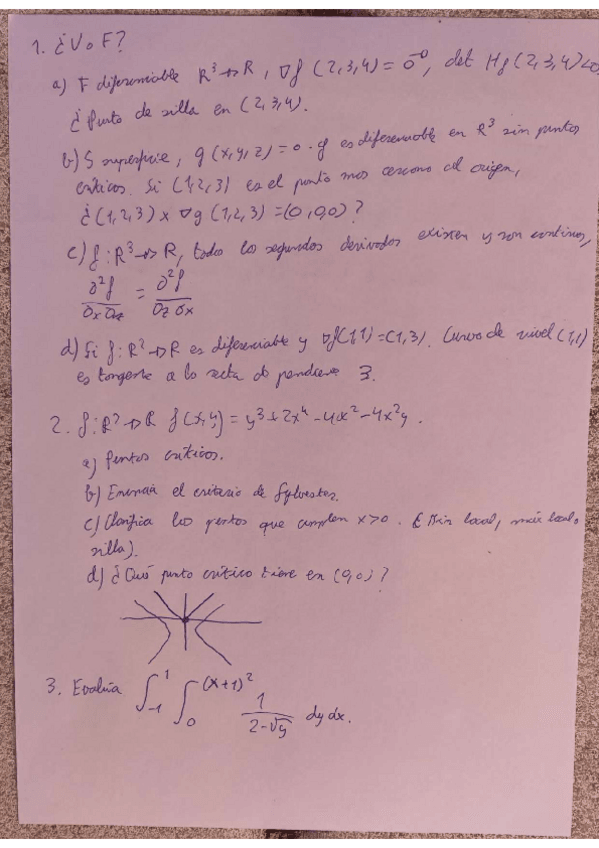 1. ¿V o F?
a) F diferenciable R³→R, ∇f (2,3,4) = 0⃗, det Hf(2,3,4)<0,
¿Punto de silla en (2,3,4).
b) S superficie, g(x,y,z)=0. g es diferenciable en R³ sin puntos
críticos. Si (1,2,3) es el punto mas cercano al origen,
¿(1,2,3) x ∇g (1,2,3) = (0,0,0)?
c) f: R³→R, todas las segundas derivadas existen y son continuas,
∂²f/∂x∂z = ∂²f/∂z∂x
d) Si f: R²→R es diferenciable y ∇f(1,1)=(1,3). Curva de nivel (1,1)
es tangente a la recta de pendiente 3.
2. f: R²→R f(x,y) = y³+2x⁴-4x²-4x²y.
a) Puntos críticos.
b) Enuncia el criterio de Sylvester.
c) Clasifica los puntos que cumplen x>0. (Min local, máx local o
silla).
d) ¿Qué punto crítico tiene en (0,0)?
3. Evalúa ∫₋₁¹ ∫₀^(x+1)² 1/(2-√y) dy dx.